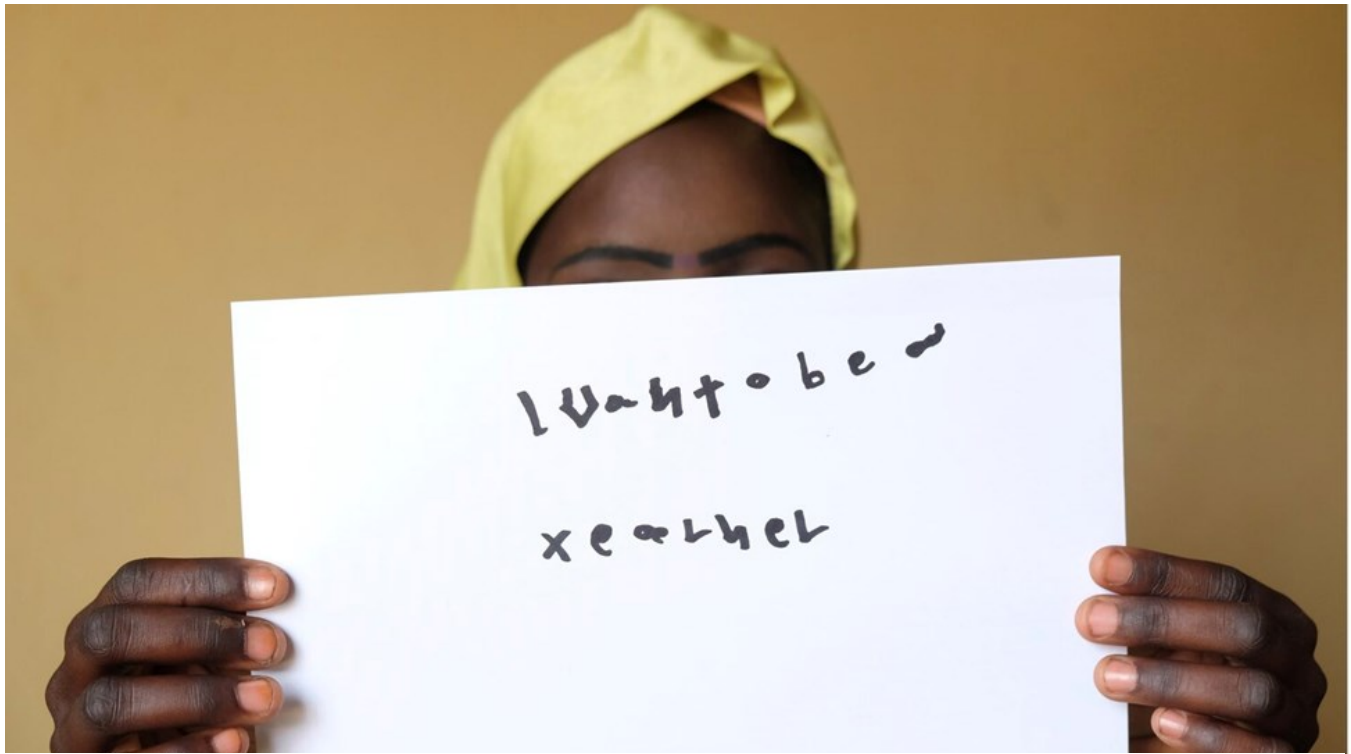 I Want to be a
xearher